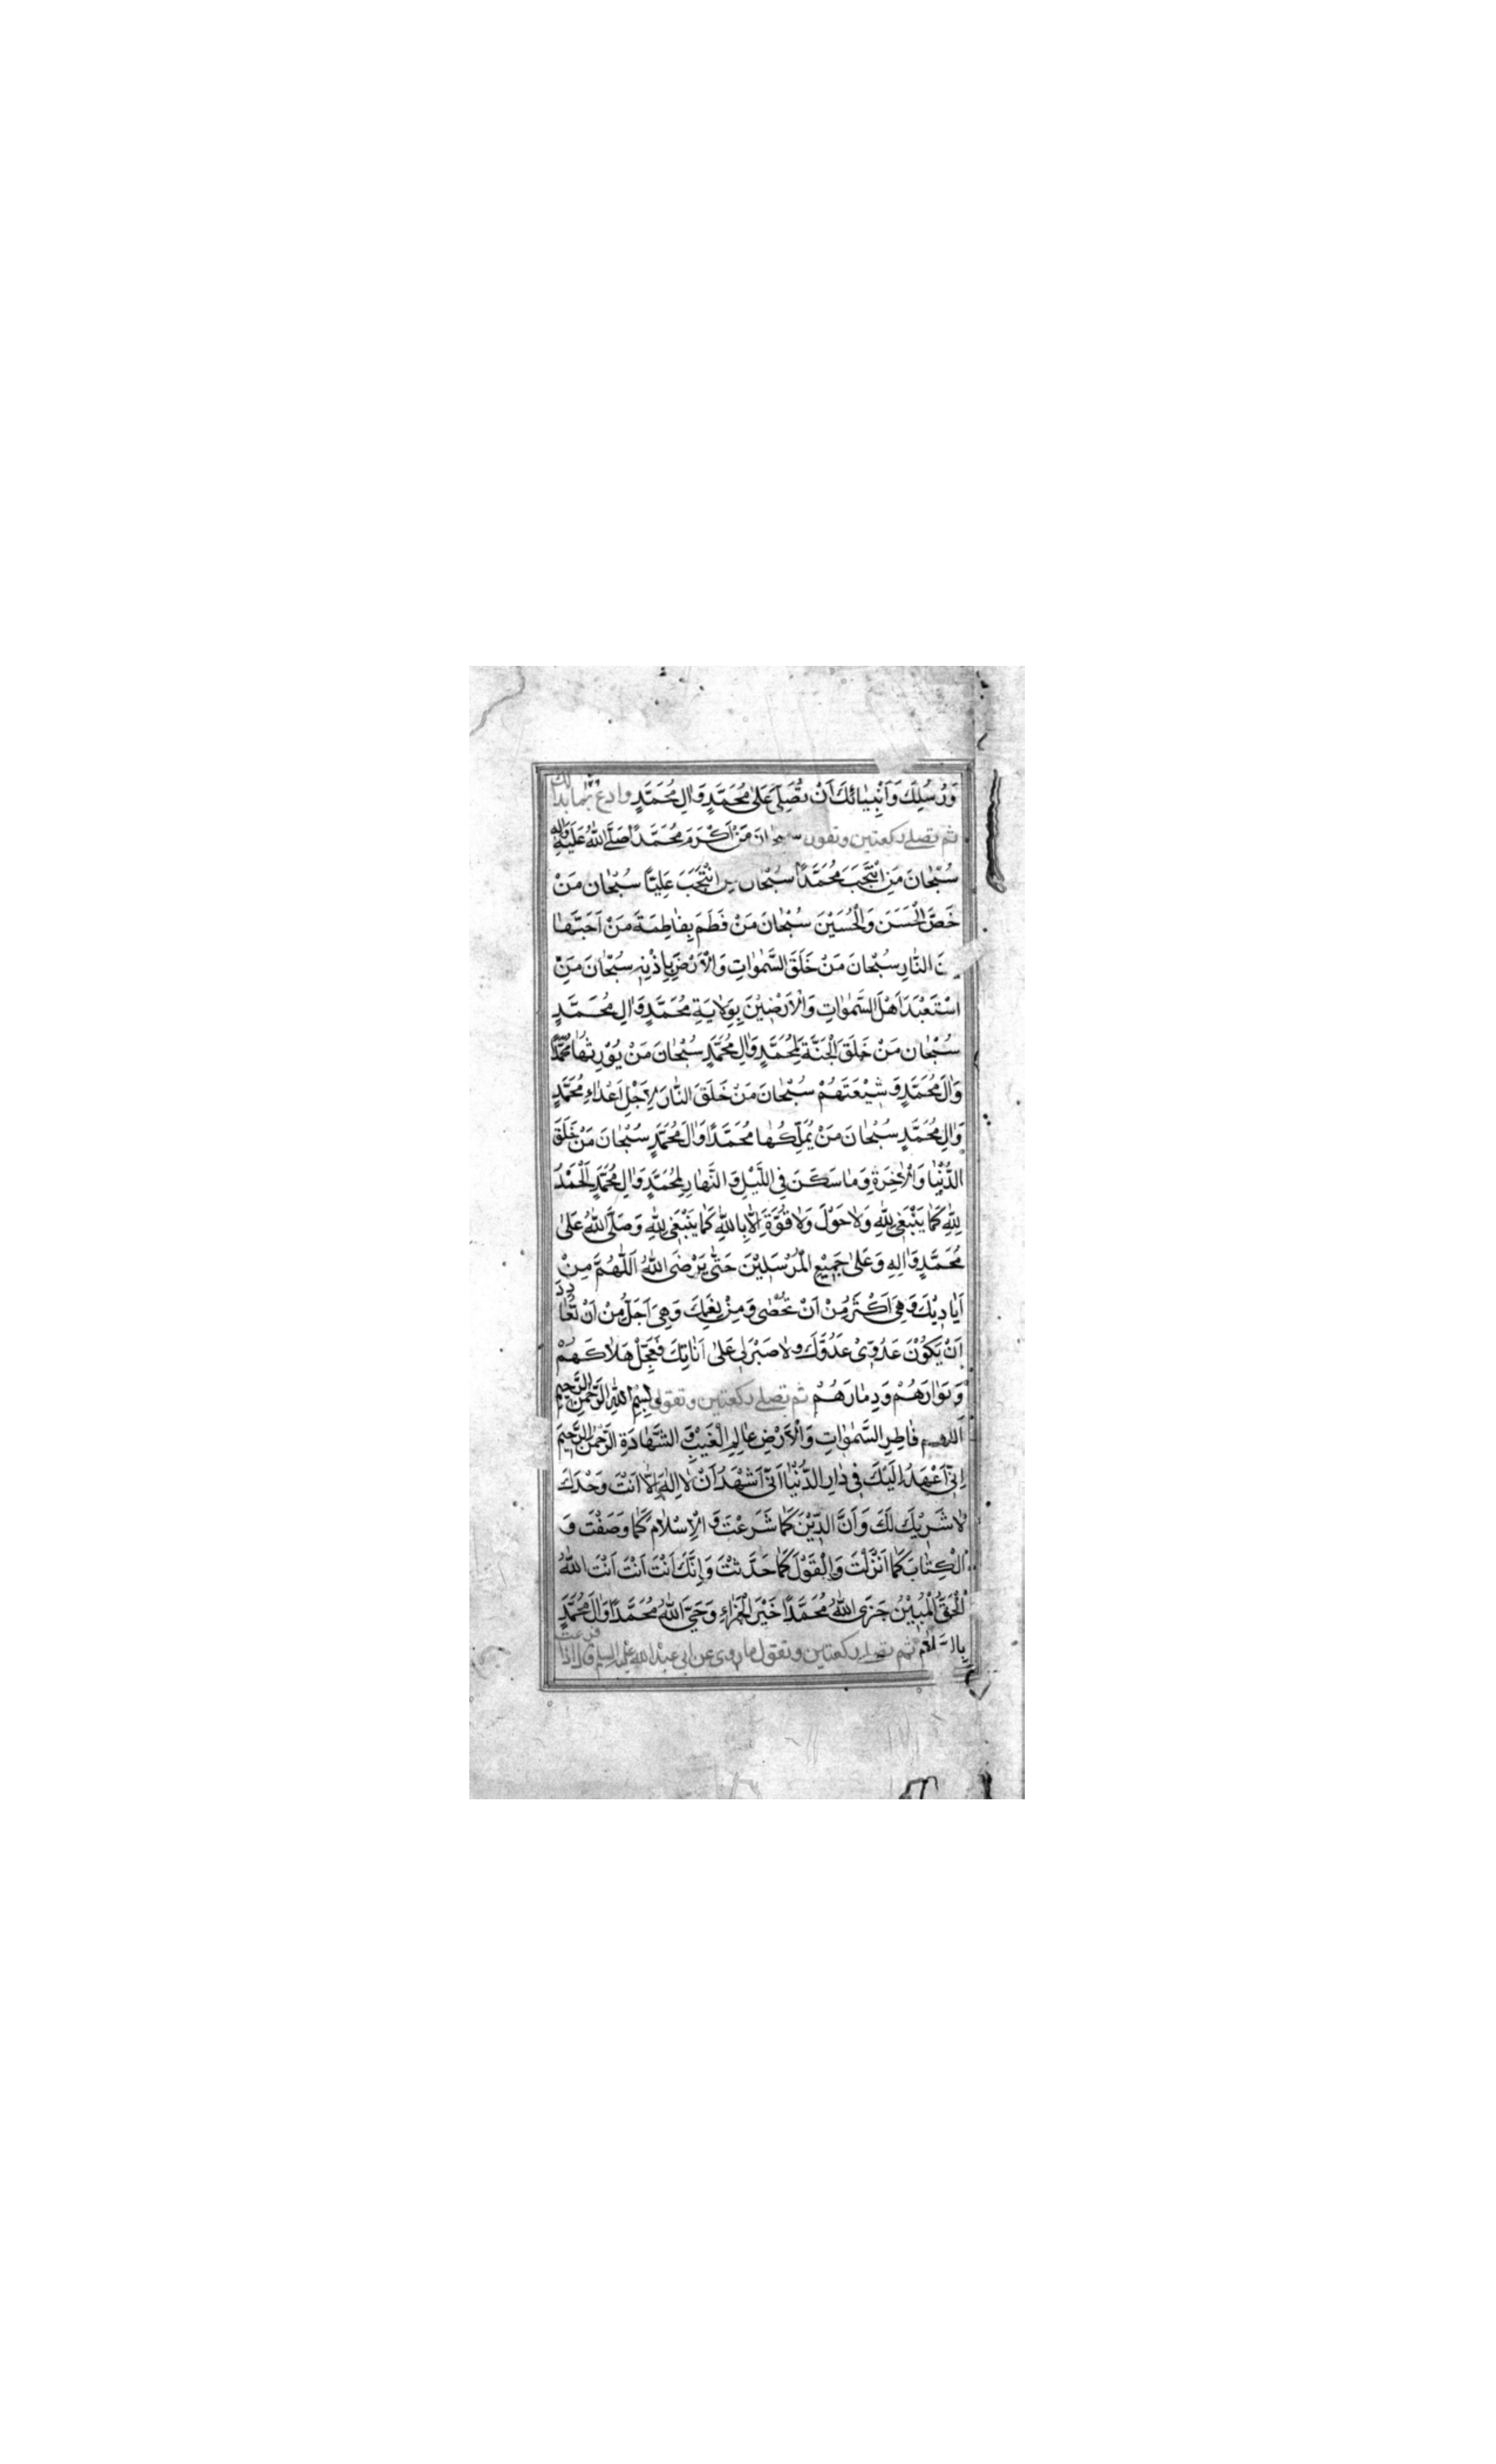 وَرُسُلِكَ وَاَنْبِيٰائِكَ اَنْ تُصَلِّىَ عَلىٰ مُحَمَّدٍ وَاٰلِ مُحَمَّدٍ وادع بما بدا لك
ثم تصلى ركعتين وتقول سبحان مَنْ اَكْرَمَ مُحَمَّدًا صَلَّى اللّٰهُ عَلَيْهِ وَاٰلِهِ
سُبْحٰانَ مَنِ انْتَجَبَ مُحَمَّدًا سُبْحٰان من انْتَجَبَ عَلِيًّا سُبْحٰان مَنْ
خَصَّ الْحَسَنَ وَالْحُسَيْنَ سُبْحٰانَ مَنْ فَطَمَ بِفٰاطِمَةَ مَنْ اَحَبَّهٰا
مِنَ النّٰارِ سُبْحٰانَ مَنْ خَلَقَ السَّمٰوٰاتِ وَالْاَرْضَ بِاِذْنِهِ سُبْحٰانَ مَنِ
اسْتَعْبَدَ اَهْلَ السَّمٰوٰاتِ وَالْاَرَضِيْنَ بِوِلٰايَةِ مُحَمَّدٍ وَاٰلِ مُحَمَّدٍ
سُبْحٰان مَنْ خَلَقَ الْجَنَّةَ لِمُحَمَّدٍ وَاٰلِ مُحَمَّدٍ سُبْحٰانَ مَنْ يُوْرِثُهٰا مُحَمَّدًا
وَاٰلَ مُحَمَّدٍ وَشِيْعَتَهُمْ سُبْحٰانَ مَنْ خَلَقَ النّٰارَ لِاَجْلِ اَعْدٰاءِ مُحَمَّدٍ
وَاٰلِ مُحَمَّدٍ سُبْحٰانَ مَنْ يُمَلِّكُهٰا مُحَمَّدًا وَاٰلَ مُحَمَّدٍ سُبْحٰانَ مَنْ خَلَقَ
الدُّنْيٰا وَالْاٰخِرَةِ وَمٰا سَكَنَ فِى اللَّيْلِ وَالنَّهٰارِ لِمُحَمَّدٍ وَاٰلِ مُحَمَّدٍ اَلْحَمْدُ
لِلّٰهِ كَمٰا يَنْبَغِى لِلّٰهِ وَلٰا حَوْلَ وَلٰا قُوَّةَ اِلّٰا بِاللّٰهِ كَمٰا يَنْبَغِى لِلّٰهِ وَصَلَّى اللّٰهُ عَلىٰ
مُحَمَّدٍ وَاٰلِهِ وَعَلىٰ جَمِيْعِ الْمُرْسَلِيْنَ حَتّٰى يَرْضَى اللّٰهُ اَللّٰهُمَّ مِنْ
اَيٰادِيْكَ وَهِىَ اَكْثَرُ مِنْ اَنْ تُحْصٰى وَمِنْ نِعَمِكَ وَهِىَ اَجَلُّ مِنْ اَنْ تُغٰادَرَ
اَنْ يَكُوْنَ عَدُوّىْ عَدُوَّكَ ولٰا صَبْرَ لِى عَلىٰ اَنٰاتِكَ فَعَجِّلْ هَلٰاكَهُمْ
وَبَوٰارَهُمْ وَدِمٰارَهُمْ ثم تصلى ركعتين وتقول بِسْمِ اللّٰهِ الرَّحْمٰنِ الرَّحِيْمِ
اَللّٰهم فٰاطِرِ السَّمٰوٰاتِ وَالْاَرْضِ عٰالِمِ الْغَيْبِ وَالشَّهٰادَةِ الرَّحْمٰنَ الرَّحِيْمَ
اِنّى اَعْهَدُ اِلَيْكَ فِى دٰارِ الدُّنْيٰا اَنّى اَشْهَدُ اَنْ لٰا اِلٰهَ اِلّٰا اَنْتَ وَحْدَكَ
لٰا شَرِيْكَ لَكَ وَاَنَّ الدّيْنَ كَمٰا شَرَعْتَ وَالْاِسْلٰامُ كَمٰا وَصَفْتَ وَ
الْكِتٰابَ كَمٰا اَنْزَلْتَ وَالْقَوْلَ كَمٰا حَدَّثْتَ وَاِنَّكَ اَنْتَ اَنْتَ اَنْتَ اللّٰهُ
الْحَقُّ الْمُبِيْنُ جَزَى اللّٰهُ مُحَمَّدًا خَيْرَ الْجَزٰاءِ وَحَيَّى اللّٰهُ مُحَمَّدًا وَاٰلَ مُحَمَّدٍ
بِالسَّلٰامِ ثم تصلى ركعتين وتقول ما روى عن ابى عبد اللّٰه عليه السلم قال اذا فرغت